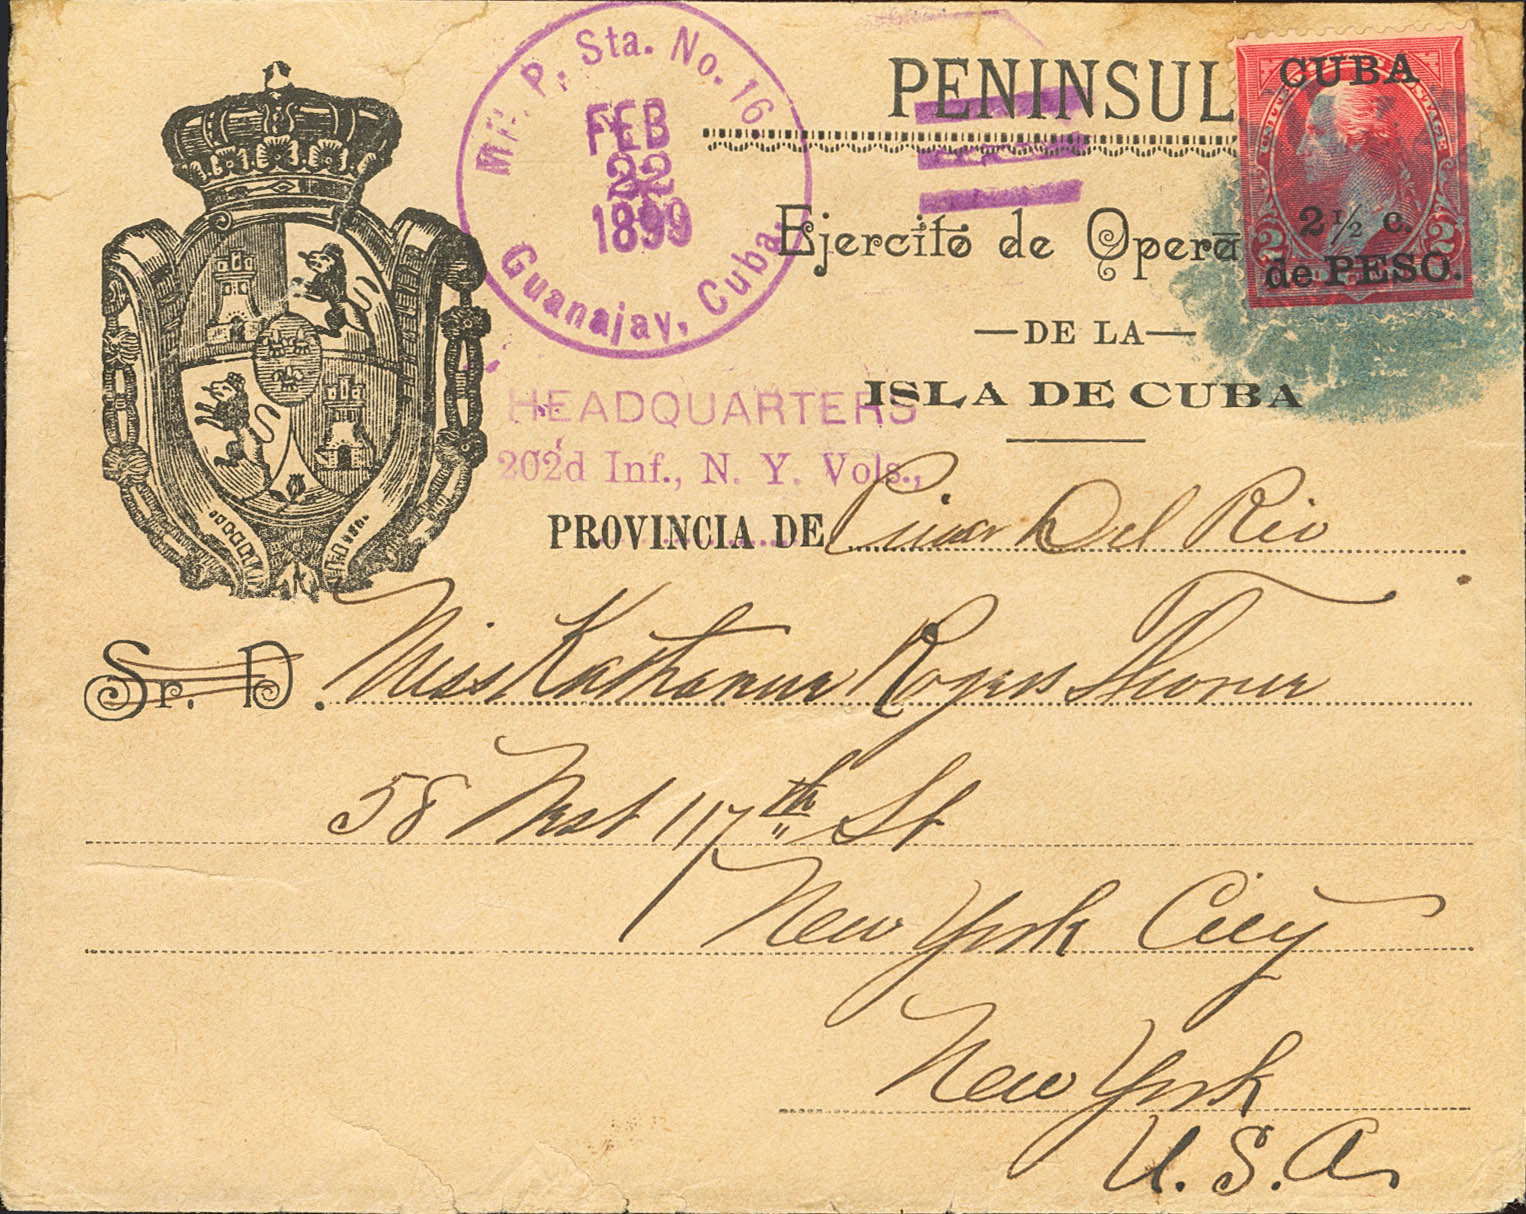 Mil. P. Sta. No. 16
FEB
22
1899
Guanajay, Cuba.
PENINSUL
Ejercito de Opera
—DE LA—
ISLA DE CUBA
CUBA
2½ c.
de PESO.
2 2
HEADQUARTERS
202d Inf., N. Y. Vols.,
PROVINCIA DE Pinar Del Rio
Sr. D. Miss Katharine Rogers
58 West 117th St
New York City
New York
U. S. A.